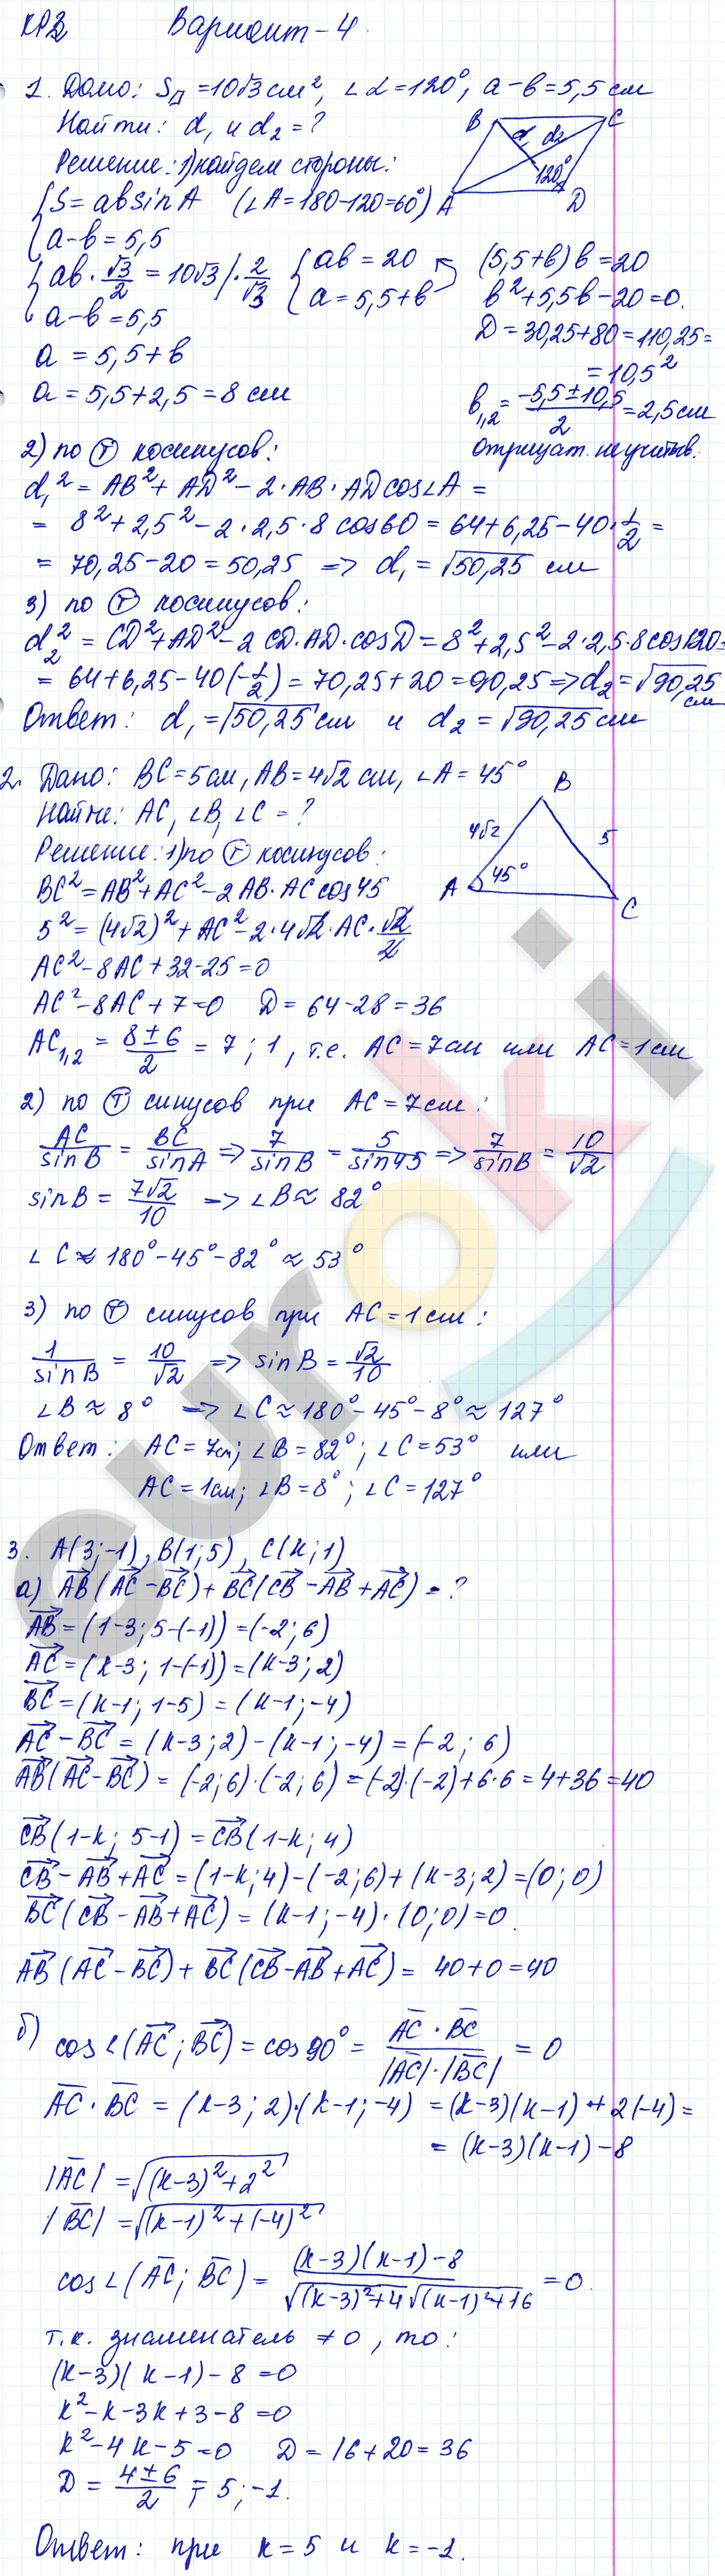 КР2 Вариант-4.
1. Дано: S▱ = 10√3 см², ∠α = 120°, a - b = 5,5 см
Найти: d₁ и d₂ = ?
B C d₁ d₂ 120° A D
Решение: 1) найдем стороны:
{S = ab sin A (∠A = 180 - 120 = 60°)
a - b = 5,5
{ab · √3/2 = 10√3 | · 2/√3 {ab = 20 (5,5 + b) b = 20
a - b = 5,5 a = 5,5 + b b² + 5,5b - 20 = 0.
a = 5,5 + b D = 30,25 + 80 = 110,25 =
= 10,5²
a = 5,5 + 2,5 = 8 см b₁,₂ = (-5,5 ± 10,5)/2 = 2,5 см
2) по Ⓣ косинусов: Отрицат. не учитыв.
d₁² = AB² + AD² - 2 · AB · AD cos∠A =
= 8² + 2,5² - 2 · 2,5 · 8 cos 60 = 64 + 6,25 - 40 · 1/2 =
= 70,25 - 20 = 50,25 => d₁ = √50,25 см
3) по Ⓣ косинусов:
d₂² = CD² + AD² - 2 CD · AD · cos D = 8² + 2,5² - 2 · 2,5 · 8 cos 120 =
= 64 + 6,25 - 40 (-1/2) = 70,25 + 20 = 90,25 => d₂ = √90,25 см
Ответ: d₁ = √50,25 см и d₂ = √90,25 см
2. Дано: BC = 5 см, AB = 4√2 см, ∠A = 45°
Найти: AC, ∠B, ∠C = ?
B 4√2 5 A 45° C
Решение: 1) по Ⓣ косинусов:
BC² = AB² + AC² - 2 AB · AC cos 45
5² = (4√2)² + AC² - 2 · 4√2 · AC · √2/2
AC² - 8AC + 32 - 25 = 0
AC² - 8AC + 7 = 0 D = 64 - 28 = 36
AC₁,₂ = (8 ± 6)/2 = 7; 1, т.е. AC = 7 см или AC = 1 см
2) по Ⓣ синусов при AC = 7 см:
AC/sin B = BC/sin A => 7/sin B = 5/sin 45 => 7/sin B = 10/√2
sin B = 7√2/10 => ∠B ≈ 82°
∠C ≈ 180° - 45° - 82° ≈ 53°
3) по Ⓣ синусов при AC = 1 см:
1/sin B = 10/√2 => sin B = √2/10
∠B ≈ 8° => ∠C ≈ 180° - 45° - 8° ≈ 127°
Ответ: AC = 7 см; ∠B = 82°; ∠C = 53° или
AC = 1 см; ∠B = 8°; ∠C = 127°
3. A(3; -1), B(1; 5), C(к; 1)
а) AB(AC - BC) + BC(CB - AB + AC) - ?
AB = (1 - 3; 5 - (-1)) = (-2; 6)
AC = (к - 3; 1 - (-1)) = (к - 3; 2)
BC = (к - 1; 1 - 5) = (к - 1; -4)
AC - BC = (к - 3; 2) - (к - 1; -4) = (-2; 6)
AB(AC - BC) = (-2; 6) · (-2; 6) = (-2) · (-2) + 6 · 6 = 4 + 36 = 40
CB(1 - к; 5 - 1) = CB(1 - к; 4)
CB - AB + AC = (1 - к; 4) - (-2; 6) + (к - 3; 2) = (0; 0)
BC(CB - AB + AC) = (к - 1; -4) · (0; 0) = 0.
AB(AC - BC) + BC(CB - AB + AC) = 40 + 0 = 40
б) cos∠(AC; BC) = cos 90° = AC · BC/|AC| · |BC| = 0
AC · BC = (к - 3; 2) · (к - 1; -4) = (к - 3)(к - 1) + 2(-4) =
= (к - 3)(к - 1) - 8
|AC| = √(к - 3)² + 2²
|BC| = √(к - 1)² + (-4)²
cos∠(AC; BC) = (к - 3)(к - 1) - 8/√(к - 3)² + 4 √(к - 1)² + 16 = 0.
т.к. знаменатель ≠ 0, то:
(к - 3)(к - 1) - 8 = 0
к² - к - 3к + 3 - 8 = 0
к² - 4к - 5 = 0 D = 16 + 20 = 36
D = (4 ± 6)/2 = 5; -1.
Ответ: при к = 5 и к = -1.
euroki